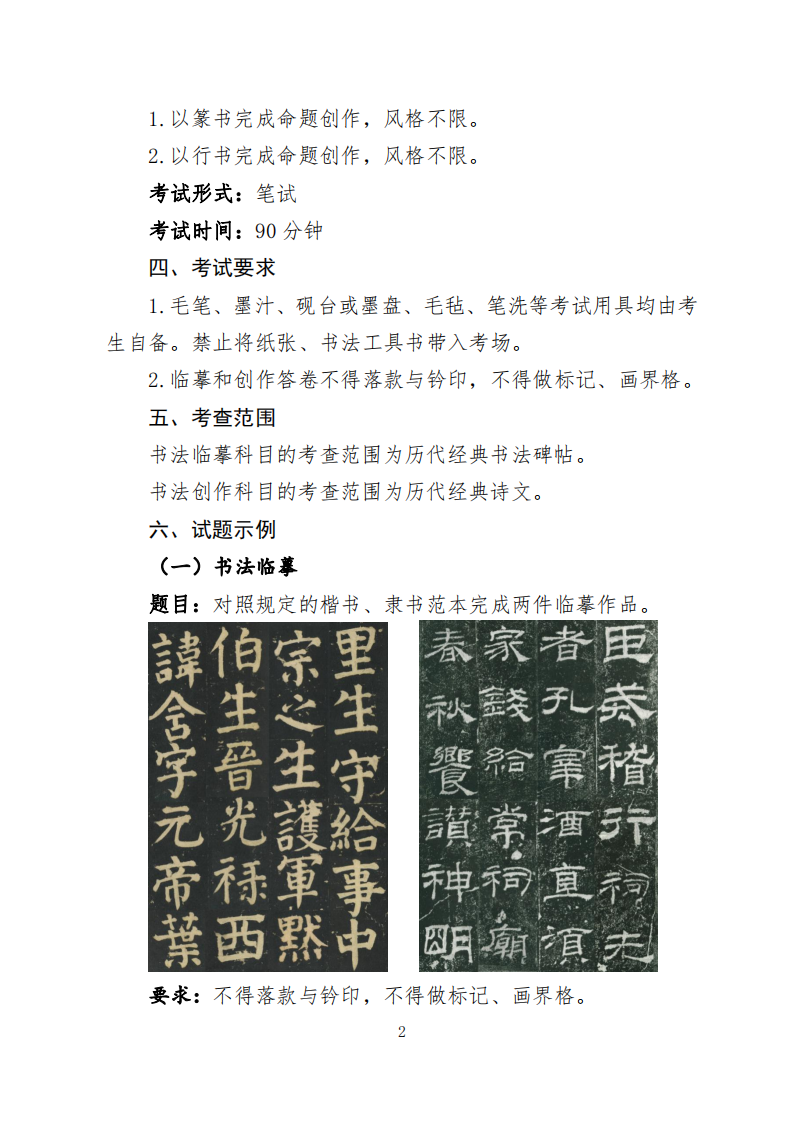 1.以篆书完成命题创作，风格不限。
2.以行书完成命题创作，风格不限。
考试形式：笔试
考试时间：90 分钟
四、考试要求
1.毛笔、墨汁、砚台或墨盘、毛毡、笔洗等考试用具均由考
生自备。禁止将纸张、书法工具书带入考场。
2.临摹和创作答卷不得落款与钤印，不得做标记、画界格。
五、考查范围
书法临摹科目的考查范围为历代经典书法碑帖。
书法创作科目的考查范围为历代经典诗文。
六、试题示例
（一）书法临摹
题目：对照规定的楷书、隶书范本完成两件临摹作品。
里生守給事中
宗之生護軍黙
伯生晉光禄西
諱含字元帝葉
臣稽行祠先
者孔宰酒直湏
家錢給常祠廟
春秋饗讃神明
要求：不得落款与钤印，不得做标记、画界格。
2